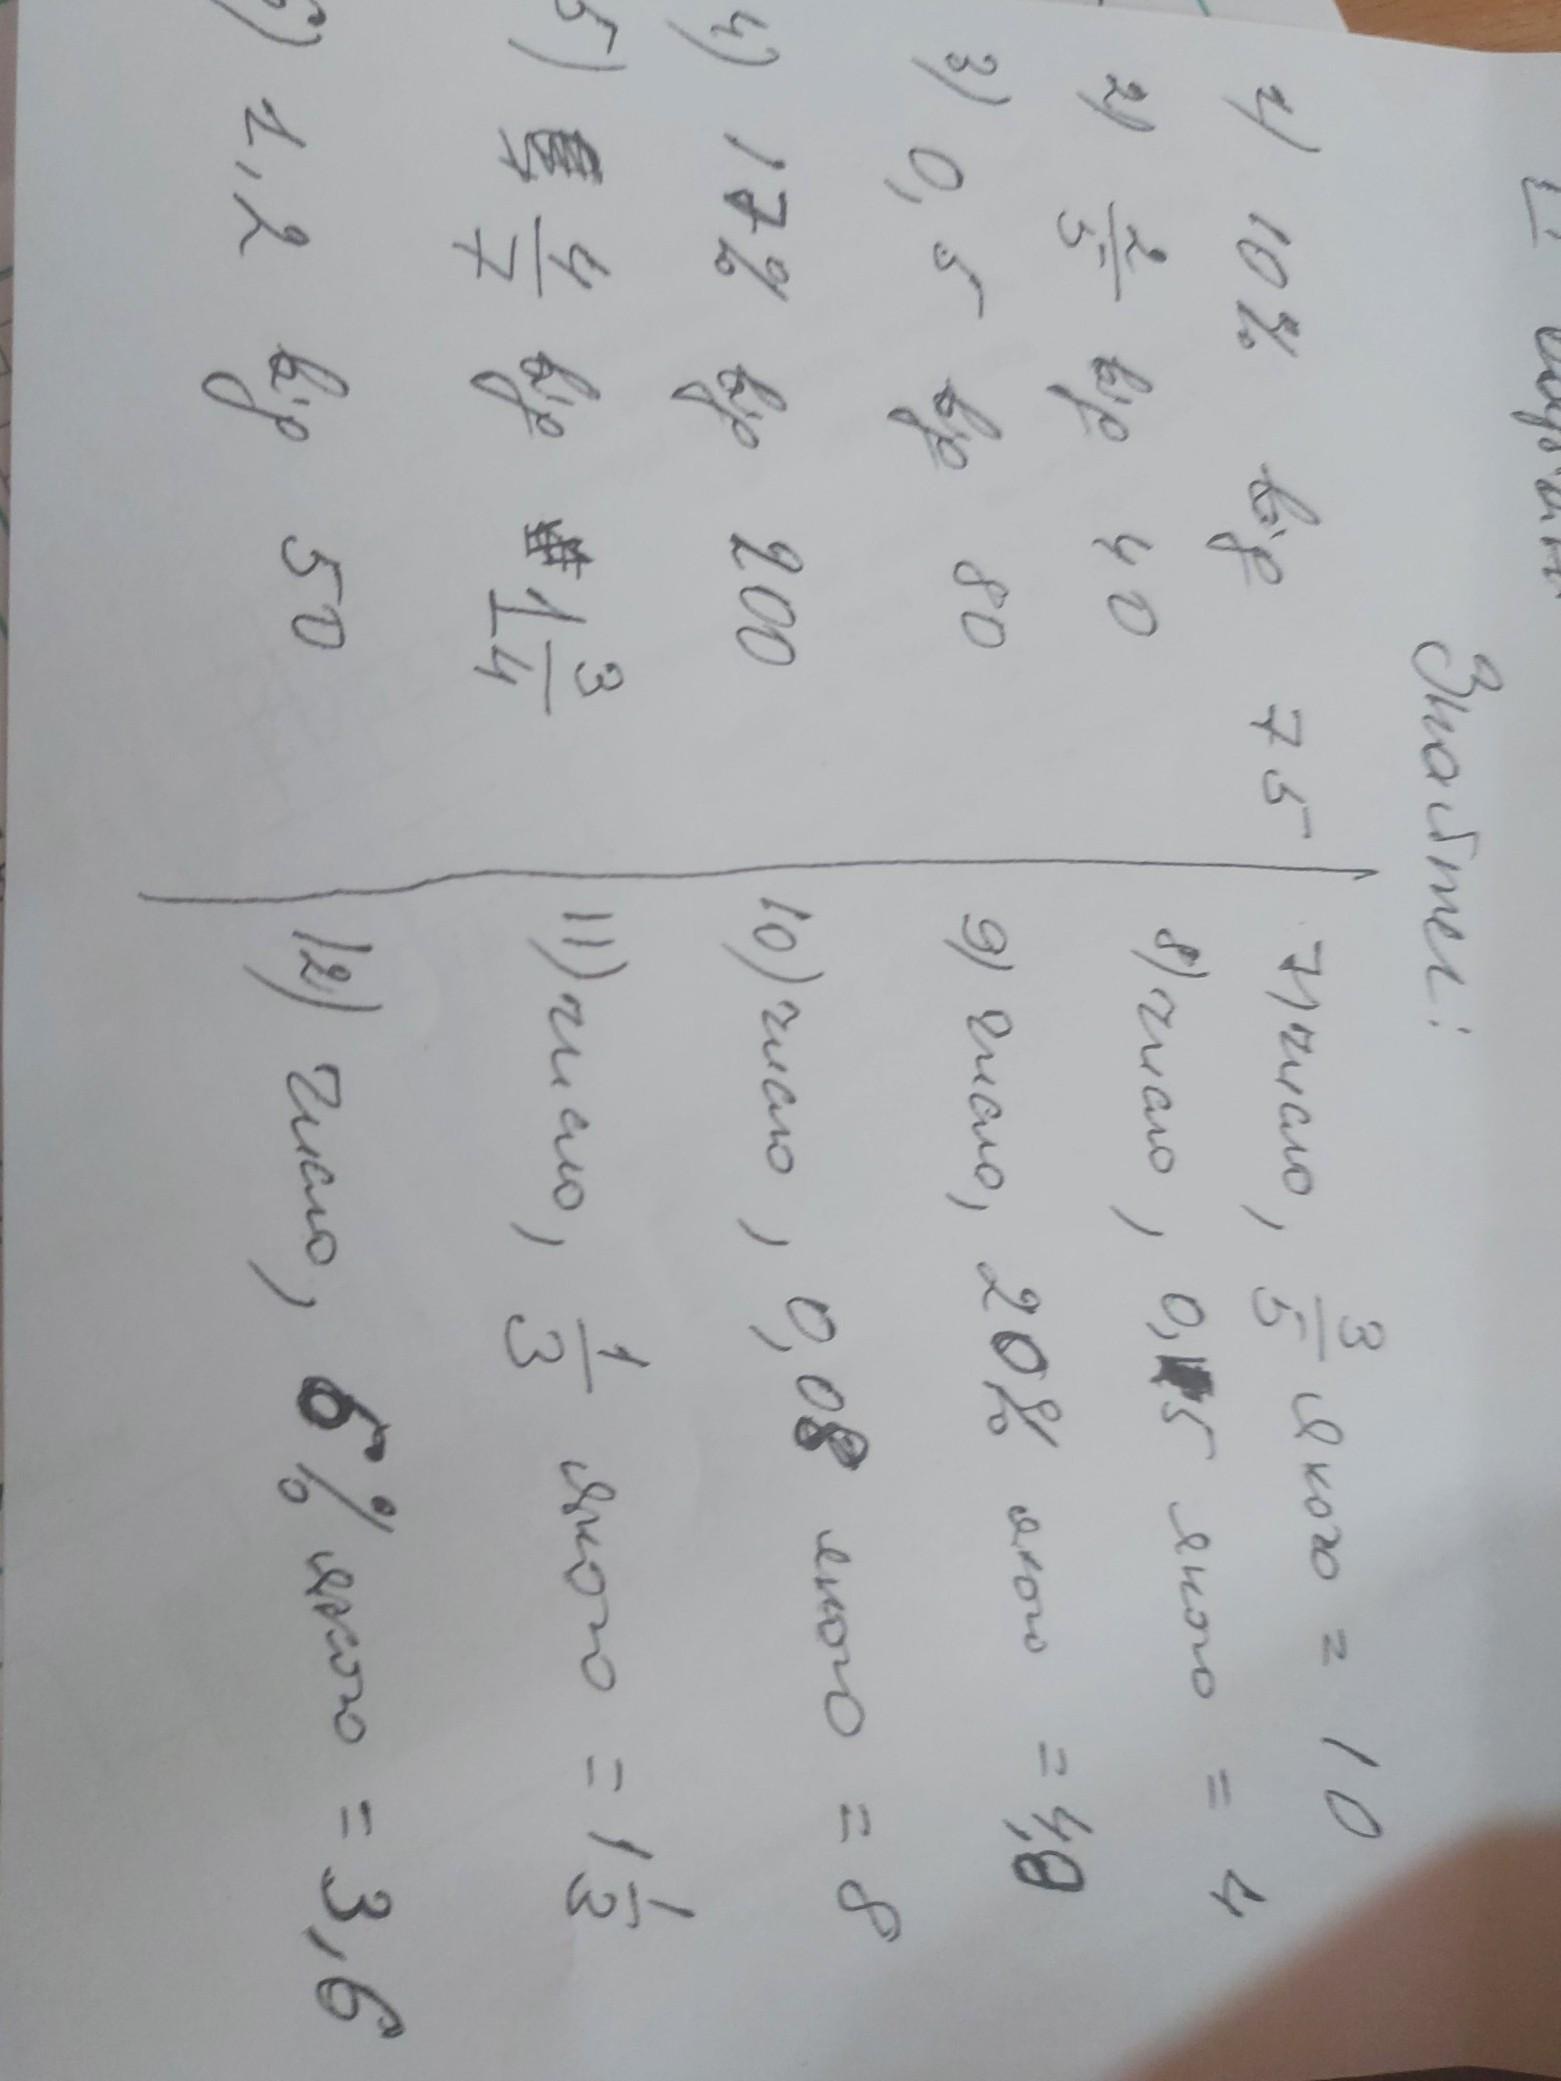 Знайти:
1) 10% від 75
2) 2/5 від 40
3) 0,5 від 80
4) 17% від 200
5) 4/7 від 1 3/4
6) 1,2 від 50
7) число, 3/5 якого = 10
8) число, 0,5 якого = 4
9) число, 20% якого = 4,8
10) число, 0,08 якого = 8
11) число, 1/3 якого = 1 1/3
12) число, 6% якого = 3,6